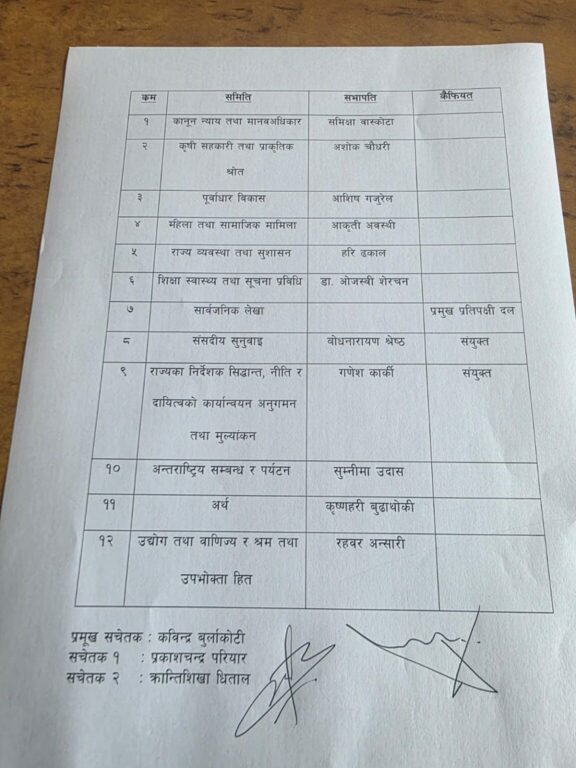 क्रम समिति सभापति कैफियत
१ कानून न्याय तथा मानवअधिकार समिक्षा वास्कोटा
२ कृषी सहकारी तथा प्राकृतिक अशोक चौधरी
श्रोत
३ पूर्वाधार विकास आशिष गजुरेल
४ महिला तथा सामाजिक मामिला आकृती अवस्थी
५ राज्य व्यवस्था तथा सुशासन हरि ढकाल
६ शिक्षा स्वास्थ्य तथा सूचना प्रविधि डा. ओजस्वी शेरचन
७ सार्वजनिक लेखा प्रमुख प्रतिपक्षी दल
८ संसदीय सुनुवाइ वोधनारायण श्रेष्ठ संयुक्त
९ राज्यका निर्देशक सिद्धान्त, नीति र गणेश कार्की संयुक्त
दायित्वको कार्यान्वयन अनुगमन
तथा मुल्यांकन
१० अन्तराष्ट्रिय सम्बन्ध र पर्यटन सुम्नीमा उदास
११ अर्थ कृष्णहरी बुढाथोकी
१२ उद्योग तथा वाणिज्य र श्रम तथा रहवर अन्सारी
उपभोक्ता हित
प्रमूख सचेतक : कविन्द्र बुर्लाकोटी
सचेतक १ : प्रकाशचन्द्र परियार
सचेतक २ : क्रान्तिशिखा धिताल